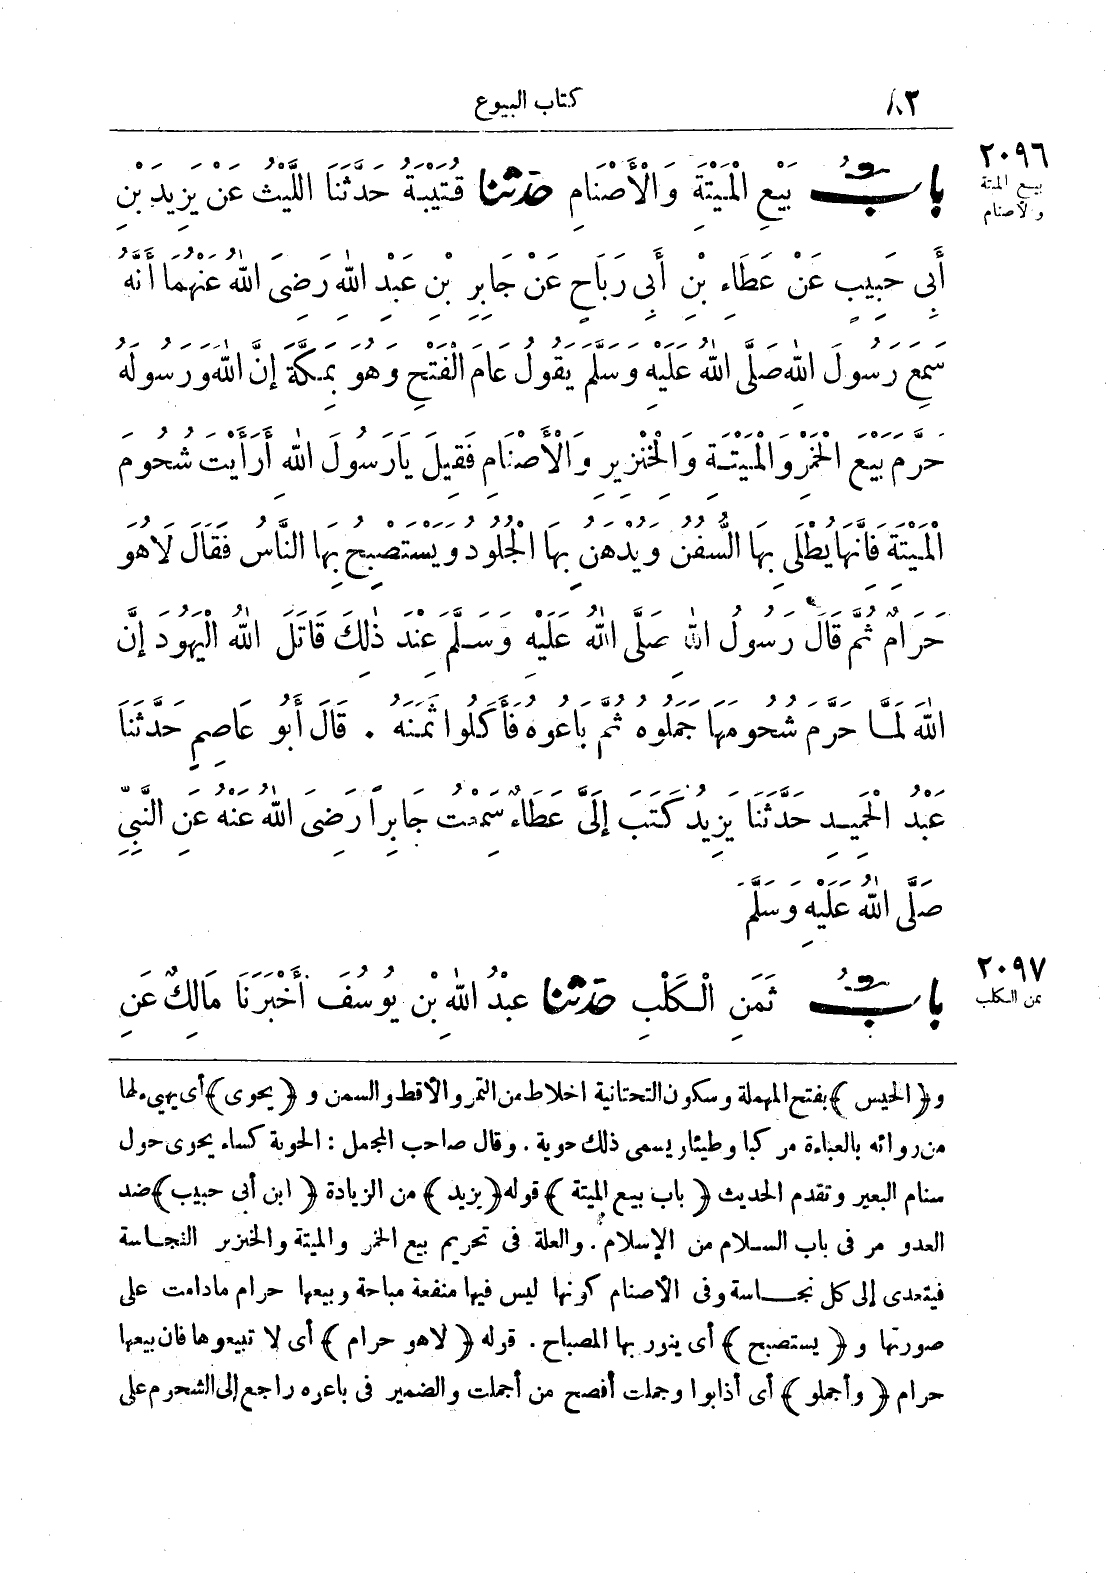 ٨٣ كتاب البيوع
٢٠٩٦
بيع الميتة
والأصنام
بَابُ بَيْعِ الْمَيْتَةِ وَالْأَصْنَامِ حَدَّثَنَا قُتَيْبَةُ حَدَّثَنَا اللَّيْثُ عَنْ يَزِيدَ بْنِ
أَبِي حَبِيبٍ عَنْ عَطَاءِ بْنِ أَبِي رَبَاحٍ عَنْ جَابِرِ بْنِ عَبْدِ اللهِ رَضِيَ اللهُ عَنْهُمَا أَنَّهُ
سَمِعَ رَسُولَ اللهِ صَلَّى اللهُ عَلَيْهِ وَسَلَّمَ يَقُولُ عَامَ الْفَتْحِ وَهُوَ بِمَكَّةَ إِنَّ اللهَ وَرَسُولَهُ
حَرَّمَ بَيْعَ الْخَمْرِ وَالْمَيْتَةِ وَالْخِنْزِيرِ وَالْأَصْنَامِ فَقِيلَ يَا رَسُولَ اللهِ أَرَأَيْتَ شُحُومَ
الْمَيْتَةِ فَإِنَّهَا يُطْلَى بِهَا السُّفُنُ وَيُدْهَنُ بِهَا الْجُلُودُ وَيَسْتَصْبِحُ بِهَا النَّاسُ فَقَالَ لَا هُوَ
حَرَامٌ ثُمَّ قَالَ رَسُولُ اللهِ صَلَّى اللهُ عَلَيْهِ وَسَلَّمَ عِنْدَ ذَلِكَ قَاتَلَ اللهُ الْيَهُودَ إِنَّ
اللهَ لَمَّا حَرَّمَ شُحُومَهَا جَمَلُوهُ ثُمَّ بَاعُوهُ فَأَكَلُوا ثَمَنَهُ . قَالَ أَبُو عَاصِمٍ حَدَّثَنَا
عَبْدُ الْحَمِيدِ حَدَّثَنَا يَزِيدُ كَتَبَ إِلَيَّ عَطَاءٌ سَمِعْتُ جَابِرًا رَضِيَ اللهُ عَنْهُ عَنِ النَّبِيِّ
صَلَّى اللهُ عَلَيْهِ وَسَلَّمَ
٢٠٩٧
ثمن الكلب
بَابُ ثَمَنِ الْكَلْبِ حَدَّثَنَا عَبْدُ اللهِ بْنُ يُوسُفَ أَخْبَرَنَا مَالِكٌ عَنِ
و﴿الحيس﴾ بفتح المهملة وسكون التحتانية اخلاط من التمر والأقط والسمن و ﴿يحوى﴾ أى يهيء لها
من روائه بالعباءة مركبا وطيئا ويسمى ذلك حوية . وقال صاحب المجمل : الحوية كساء يحوى حول
سنام البعير وتقدم الحديث ﴿باب بيع الميتة﴾ قوله ﴿يزيد﴾ من الزيادة ﴿ابن أبى حبيب﴾ ضد
العدو مر فى باب السلام من الإسلام . والعلة فى تحريم بيع الخمر والميتة والخنزير النجاسة
فيتعدى إلى كل نجاسة وفى الأصنام كونها ليس فيها منفعة مباحة وبيعها حرام مادامت على
صورتها و ﴿يستصبح﴾ أى ينور بها المصباح . قوله ﴿لاهو حرام﴾ أى لا تبيعوها فان بيعها
حرام ﴿وأجملو﴾ أى أذابوا وجملت أفصح من أجملت والضمير فى باعوه راجع إلى الشحوم على